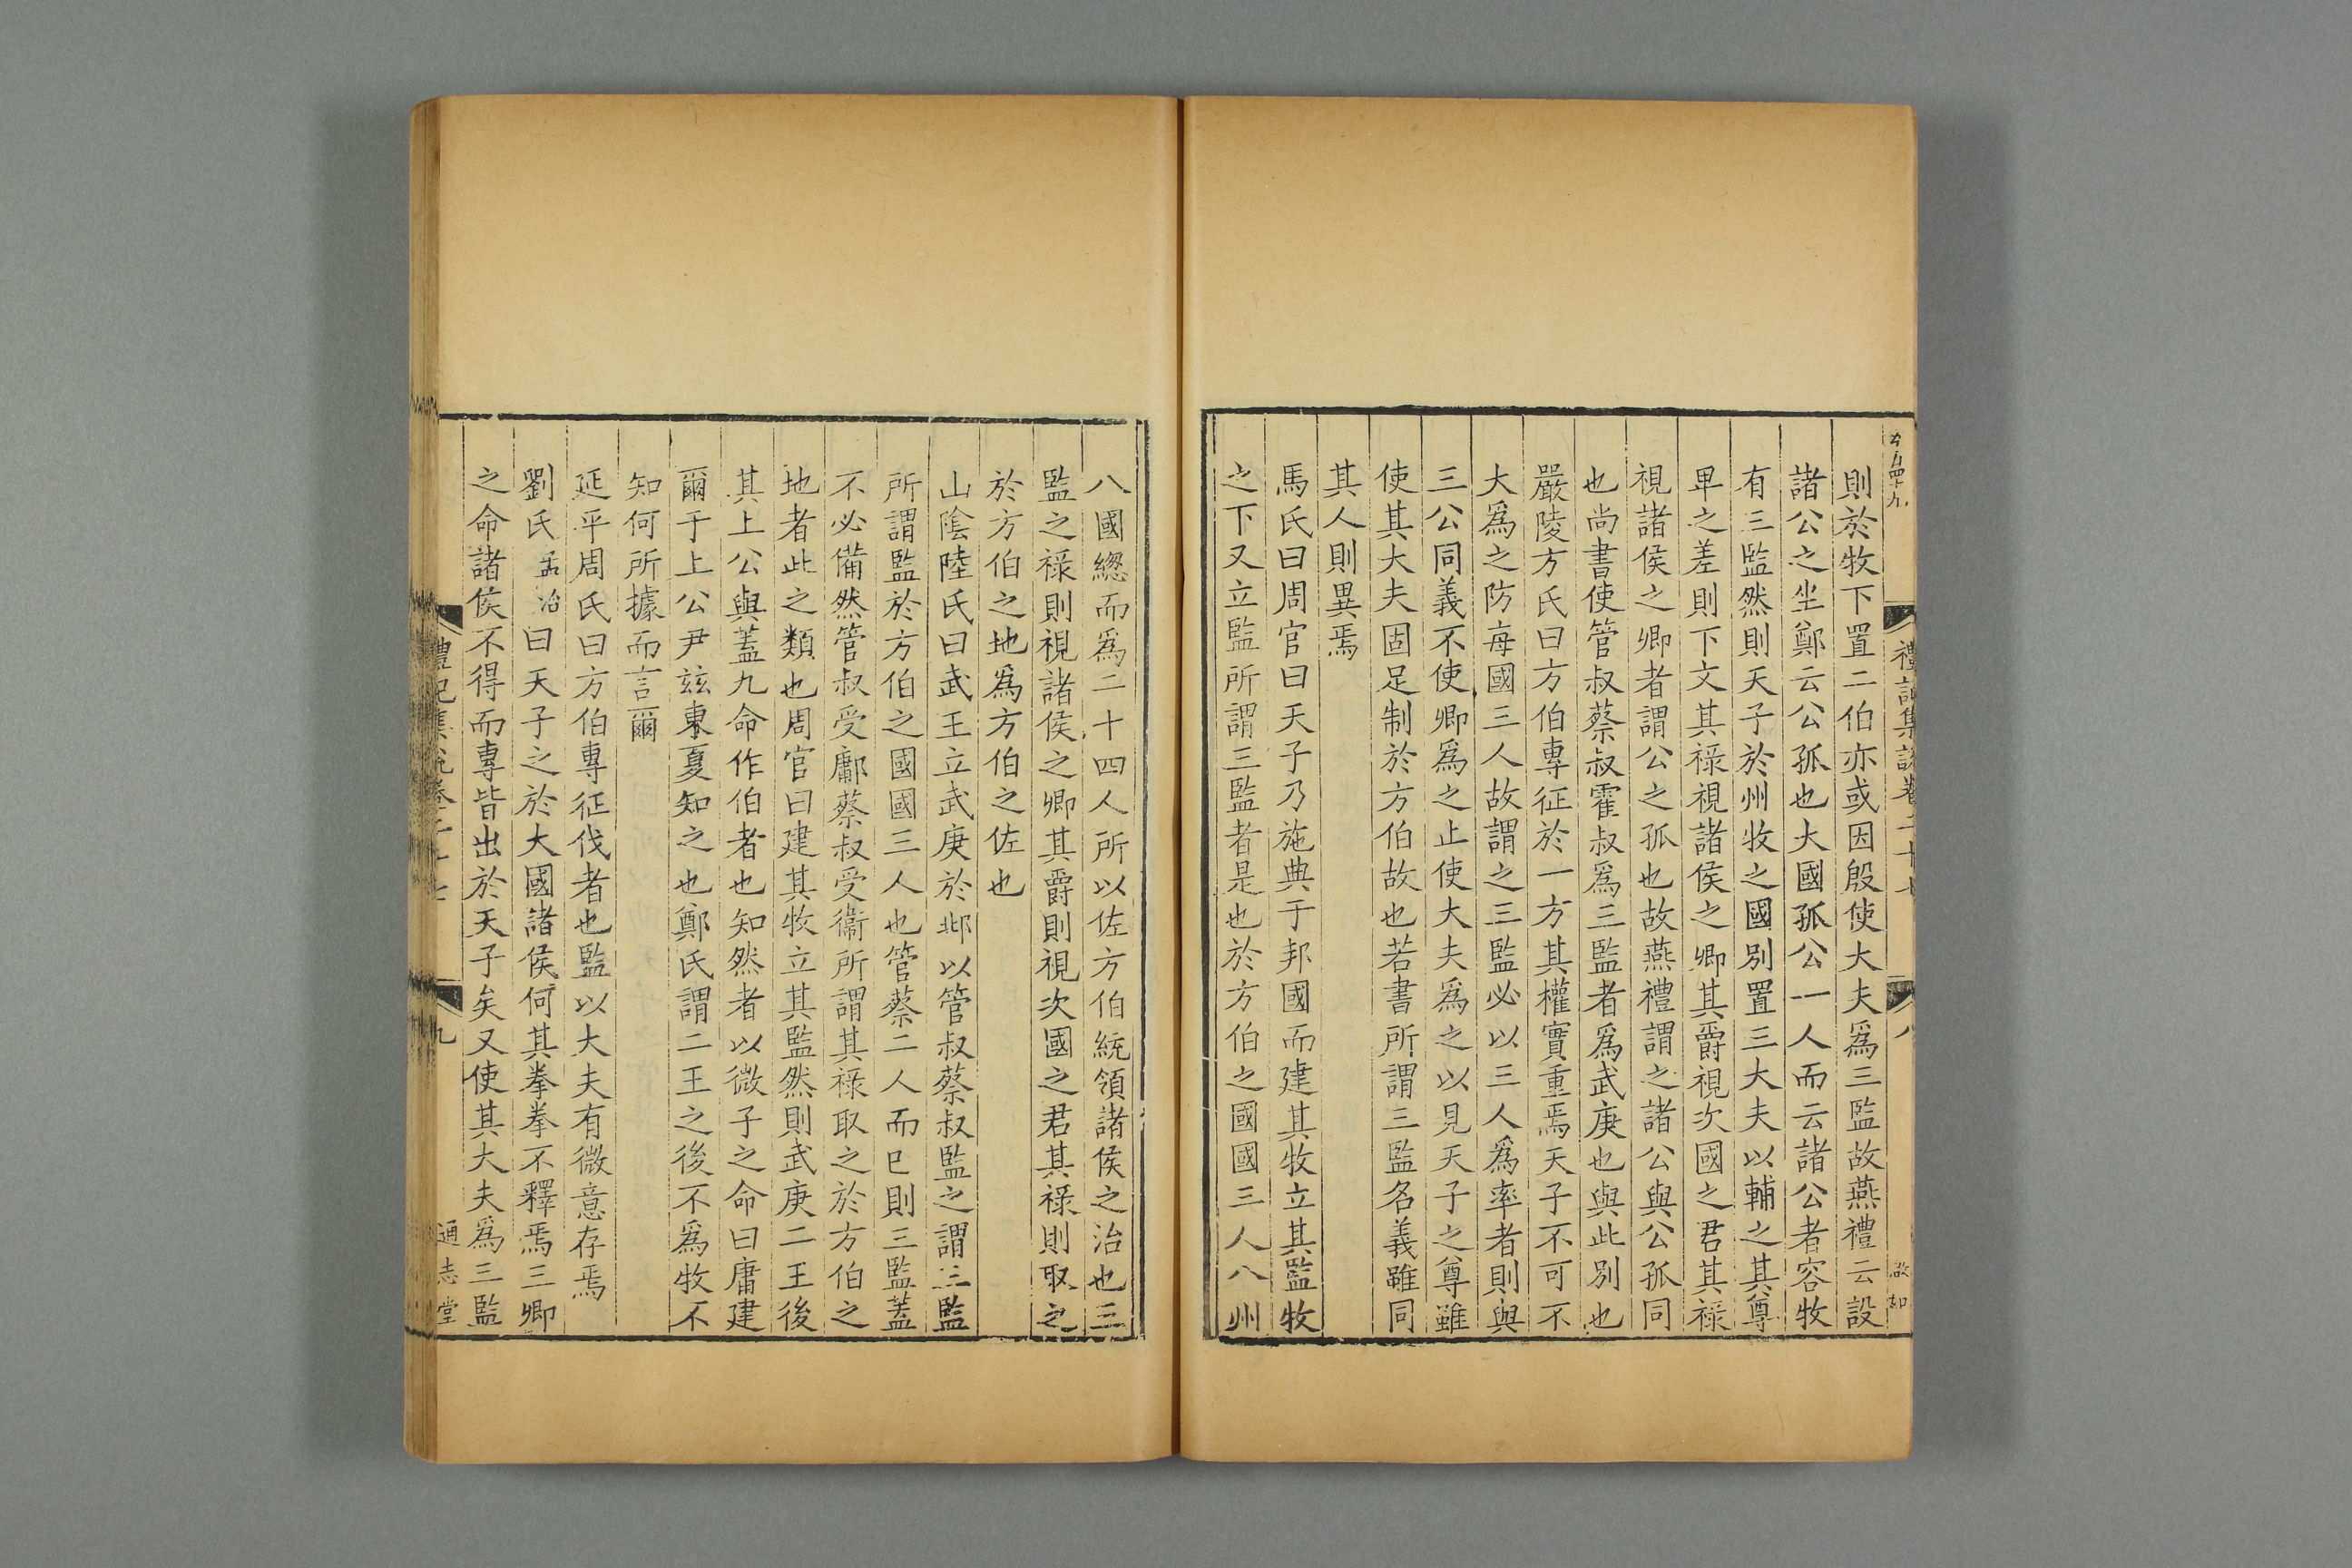 禮記集說卷二十七
八
則於牧下置二伯亦或因殷使大夫爲三監故燕禮云設
諸公之坐鄭云公孤也大國孤公一人而云諸公者容牧
有三監然則天子於州牧之國別置三大夫以輔之其尊
卑之差則下文其祿視諸侯之卿其爵視次國之君其祿
視諸侯之卿者謂公之孤也故燕禮謂之諸公與公孤同
也尚書使管叔蔡叔霍叔爲三監者爲武庚也與此別也
嚴陵方氏曰方伯專征於一方其權實重焉天子不可不
大爲之防每國三人故謂之三監必以三人爲率者則與
三公同義不使卿爲之止使大夫爲之以見天子之尊雖
使其大夫固足制於方伯故也若書所謂三監名義雖同
其人則異焉
馬氏曰周官曰天子乃施典于邦國而建其牧立其監牧
之下又立監所謂三監者是也於方伯之國國三人八州
八國緫而爲二十四人所以佐方伯統領諸侯之治也三
監之祿則視諸侯之卿其爵則視次國之君其祿則取之
於方伯之地爲方伯之佐也
山陰陸氏曰武王立武庚於邶以管叔蔡叔監之謂三監
所謂監於方伯之國國三人也管蔡二人而已則三監蓋
不必備然管叔受鄘蔡叔受衞所謂其祿取之於方伯之
地者此之類也周官曰建其牧立其監然則武庚二王後
其上公與蓋九命作伯者也知然者以微子之命曰庸建
爾于上公尹茲東夏知之也鄭氏謂二王之後不爲牧不
知何所據而言爾
延平周氏曰方伯專征伐者也監以大夫有微意存焉
劉氏孟冶曰天子之於大國諸侯何其拳拳不釋焉三卿
之命諸侯不得而專皆出於天子矣又使其大夫爲三監
禮記集說卷二十七
九
通志堂